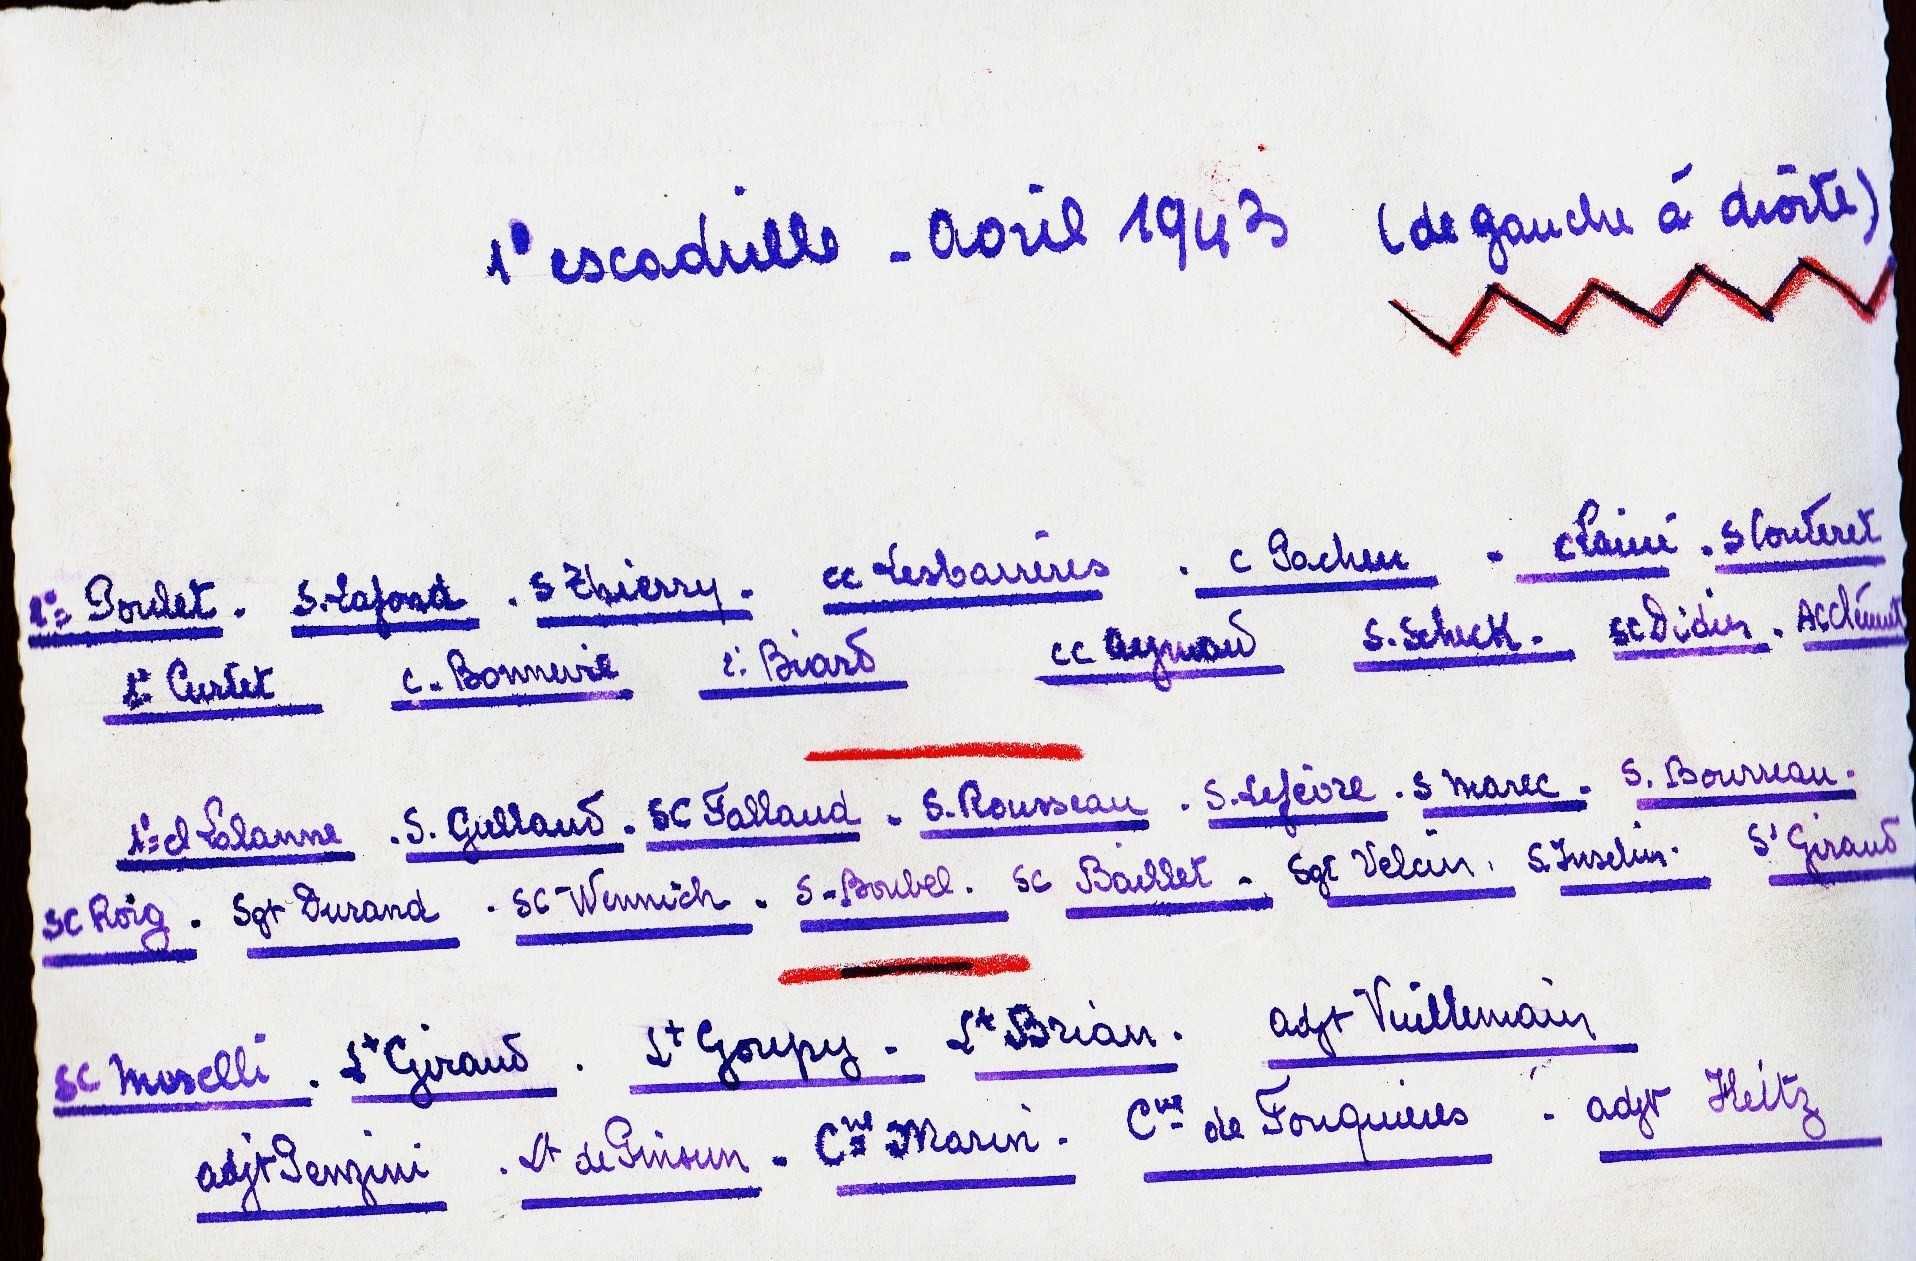 1° escadrille - Avril 1943 (de gauche à droîte)
1e= Poulet. S. Lafond. S Thierry. cc Lesbarrères. c Pacheu - c Lainé. S Conteret
1e= Curtet c. Bonnevie 1e: Biard cc Aymard S. Scheck. SC Didier. AC Clément
1e= cl Lalanne. S. Gullaud. SC Fallaud. S. Rousseau. S. Lefèvre. S Marec. S. Bourreau.
SC Roig. Sgt Durand. SC Wennich. S. Boubel. SC Baillet. Sgt Velein. S. Inselin. St Giraud
SC Moselli. Lt Giraud. Lt Goupy. Lt Brian. adjt Vuillemain
adjt Penzini. Lt de Ginsun. Cne Marin. Cne de Fouquières. adjt Heitz